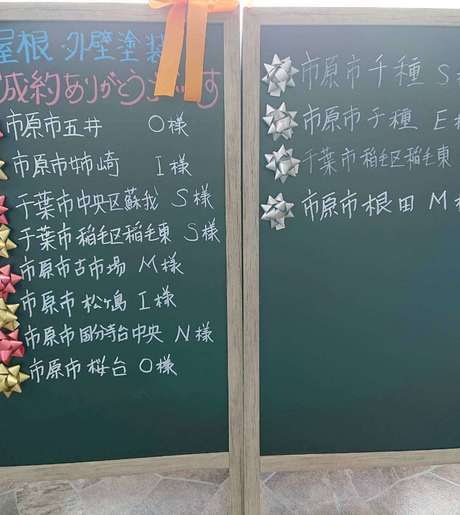 屋根 外壁塗装
成約ありがとうございます
市原市五井 O様
市原市姉崎 I様
千葉市中央区蘇我 S様
千葉市稲毛区稲毛東 S様
市原市古市場 M様
市原市松ヶ島 I様
市原市国分寺台中央 N様
市原市桜台 O様
市原市千種 S
市原市千種 E様
千葉市稲毛区稲毛東
市原市根田 M様